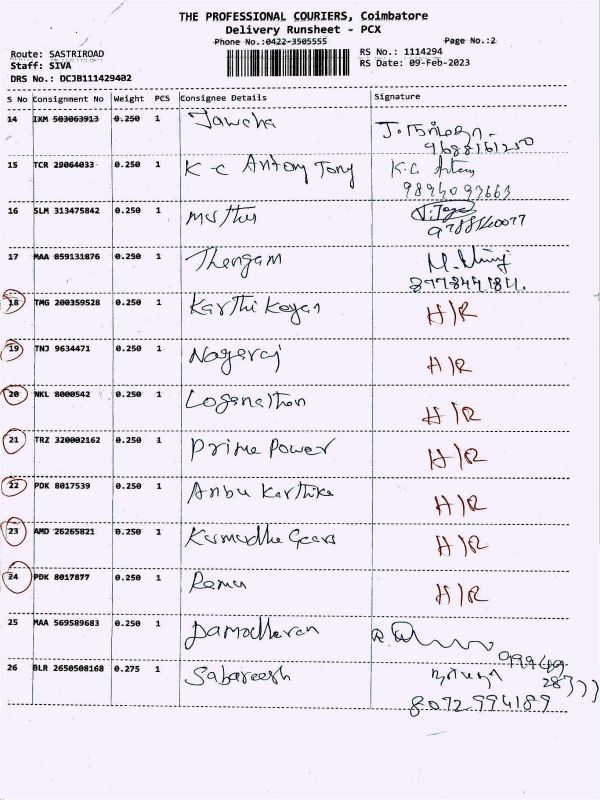 THE PROFESSIONAL COURIERS, Coimbatore
Delivery Runsheet - PCX
Phone No.:0422-3505555 Page No.:2
Route: SASTRIROAD RS No.: 1114294
Staff: SIVA RS Date: 09-Feb-2023
DRS No.: DCJB111429402
S No Consignment No Weight PCS Consignee Details Signature
14 IXM 503063913 0.250 1 Jawcha
15 TCR 29064033 0.250 1 K C Antony Tony K.C
16 SLM 313475842 0.250 1
9788140077
17 MAA 859131876 0.250 1 Thengam M.
18 TMG 200359528 0.250 1 Karthi Keyan H/R
19 TNJ 9634471 0.250 1 Nagaraj H/R
20 NKL 8000542 0.250 1 Loganathan H/R
21 TRZ 320002162 0.250 1 Prime Power H/R
22 PDK 8017539 0.250 1 Anbu Karthika H/R
23 AMD 26265821 0.250 1 Kumudha Gears H/R
24 PDK 8017877 0.250 1 Ramu H/R
25 MAA 569589683 0.250 1 Damodharan R.
26 BLR 2650508168 0.275 1 Sabareesh
8072994189